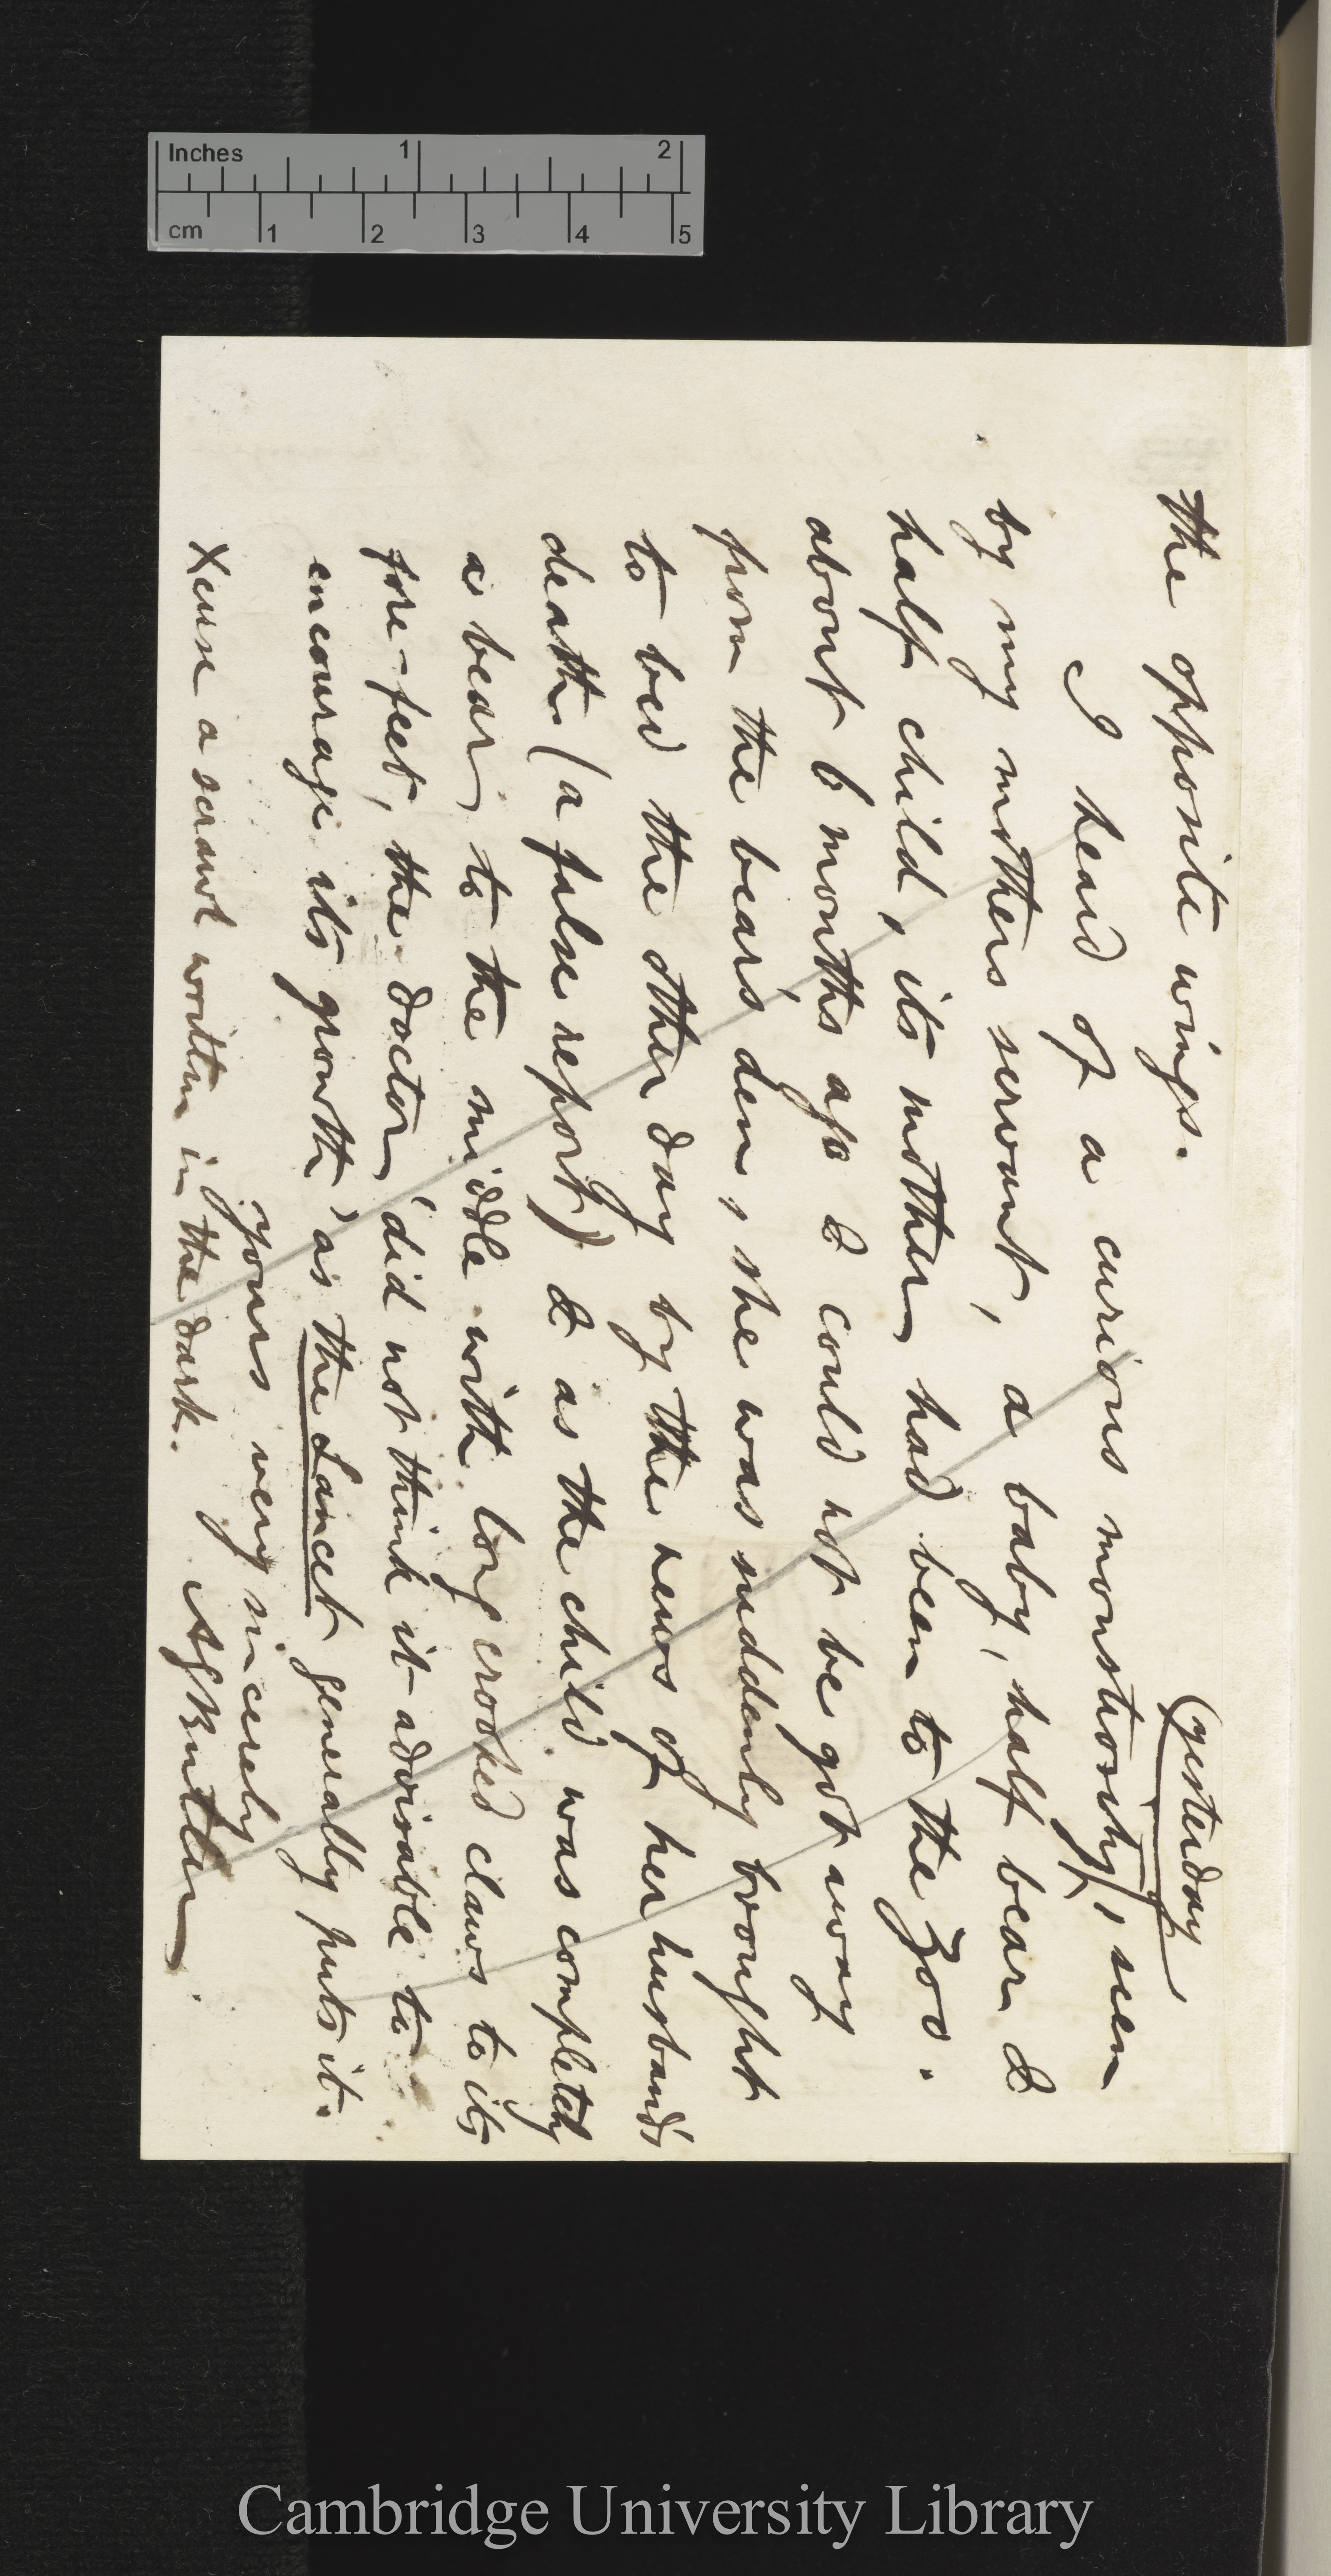 Inches 1 2
cm 1 2 3 4 5
the opposite wings.
(yesterday
I heard of a curious monstrosity, seen
by my mothers servant, a baby, half bear &
half child, its mother had been to the Zoo.
about 6 months ago & could not be got away
from the bears' den, she was suddenly brought
to bed the other day by the news of her husband's
death (a false report) & as the child was completely
a bear to the middle with long crooked claws to its
fore-feet, the doctor 'did not think it advisable to
encourage its growth' as the Lancet generally puts it.
yours very sincerely
AGButler.
Xcuse a scrawl written in the dark.
Cambridge University Library